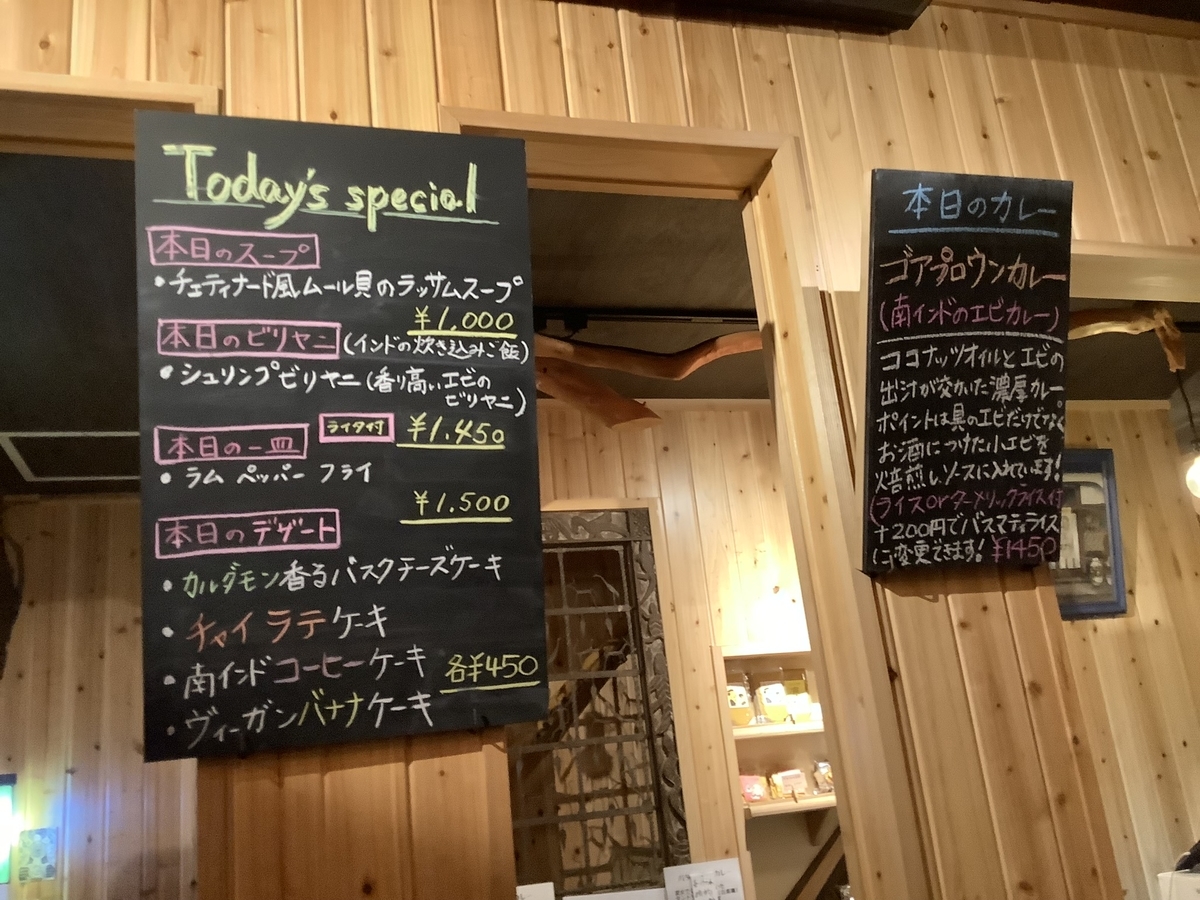 Today's special
本日のスープ
・チェティナード風ムール貝のラッサムスープ
¥1,000
本日のビリヤニ(インドの炊き込みご飯)
・シュリンプビリヤニ(香り高いエビの
ビリヤニ)
ライタ付 ¥1.450
本日の一皿
・ラム ペッパー フライ
¥1.500
本日のデザート
・カルダモン香るバスクチーズケーキ
・チャイラテケーキ
・南インドコーヒーケーキ 各¥450
・ヴィーガンバナナケーキ
本日のカレー
ゴアプロウンカレー
(南インドのエビカレー)
ココナッツオイルとエビの
出汁が効いた濃厚カレー
ポイントは具のエビだけでなく
お酒につけた小エビを
焙煎しソースに入れています!
(ライスorターメリックライス付
+200円でバスマティライス
に変更できます! ¥1450